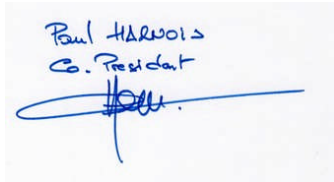 Paul HARNOIS
Co. President